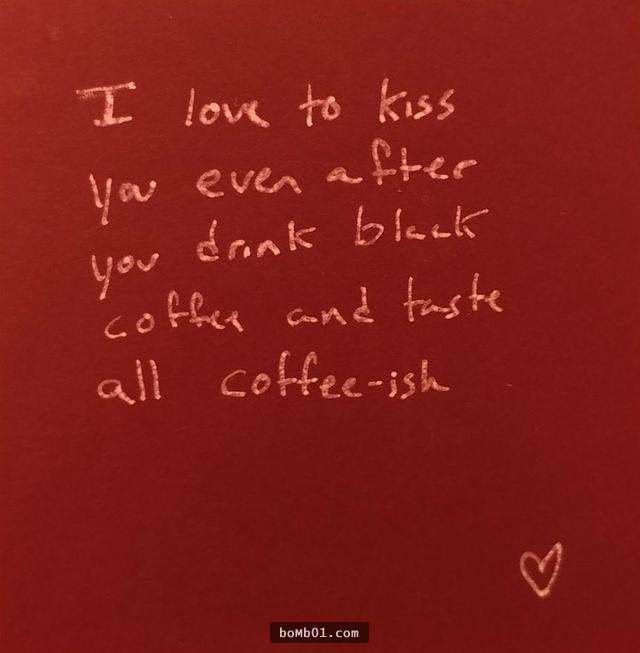 I love to kiss
you even after
you drink black
coffee and taste
all coffee-ish
boMb01.com